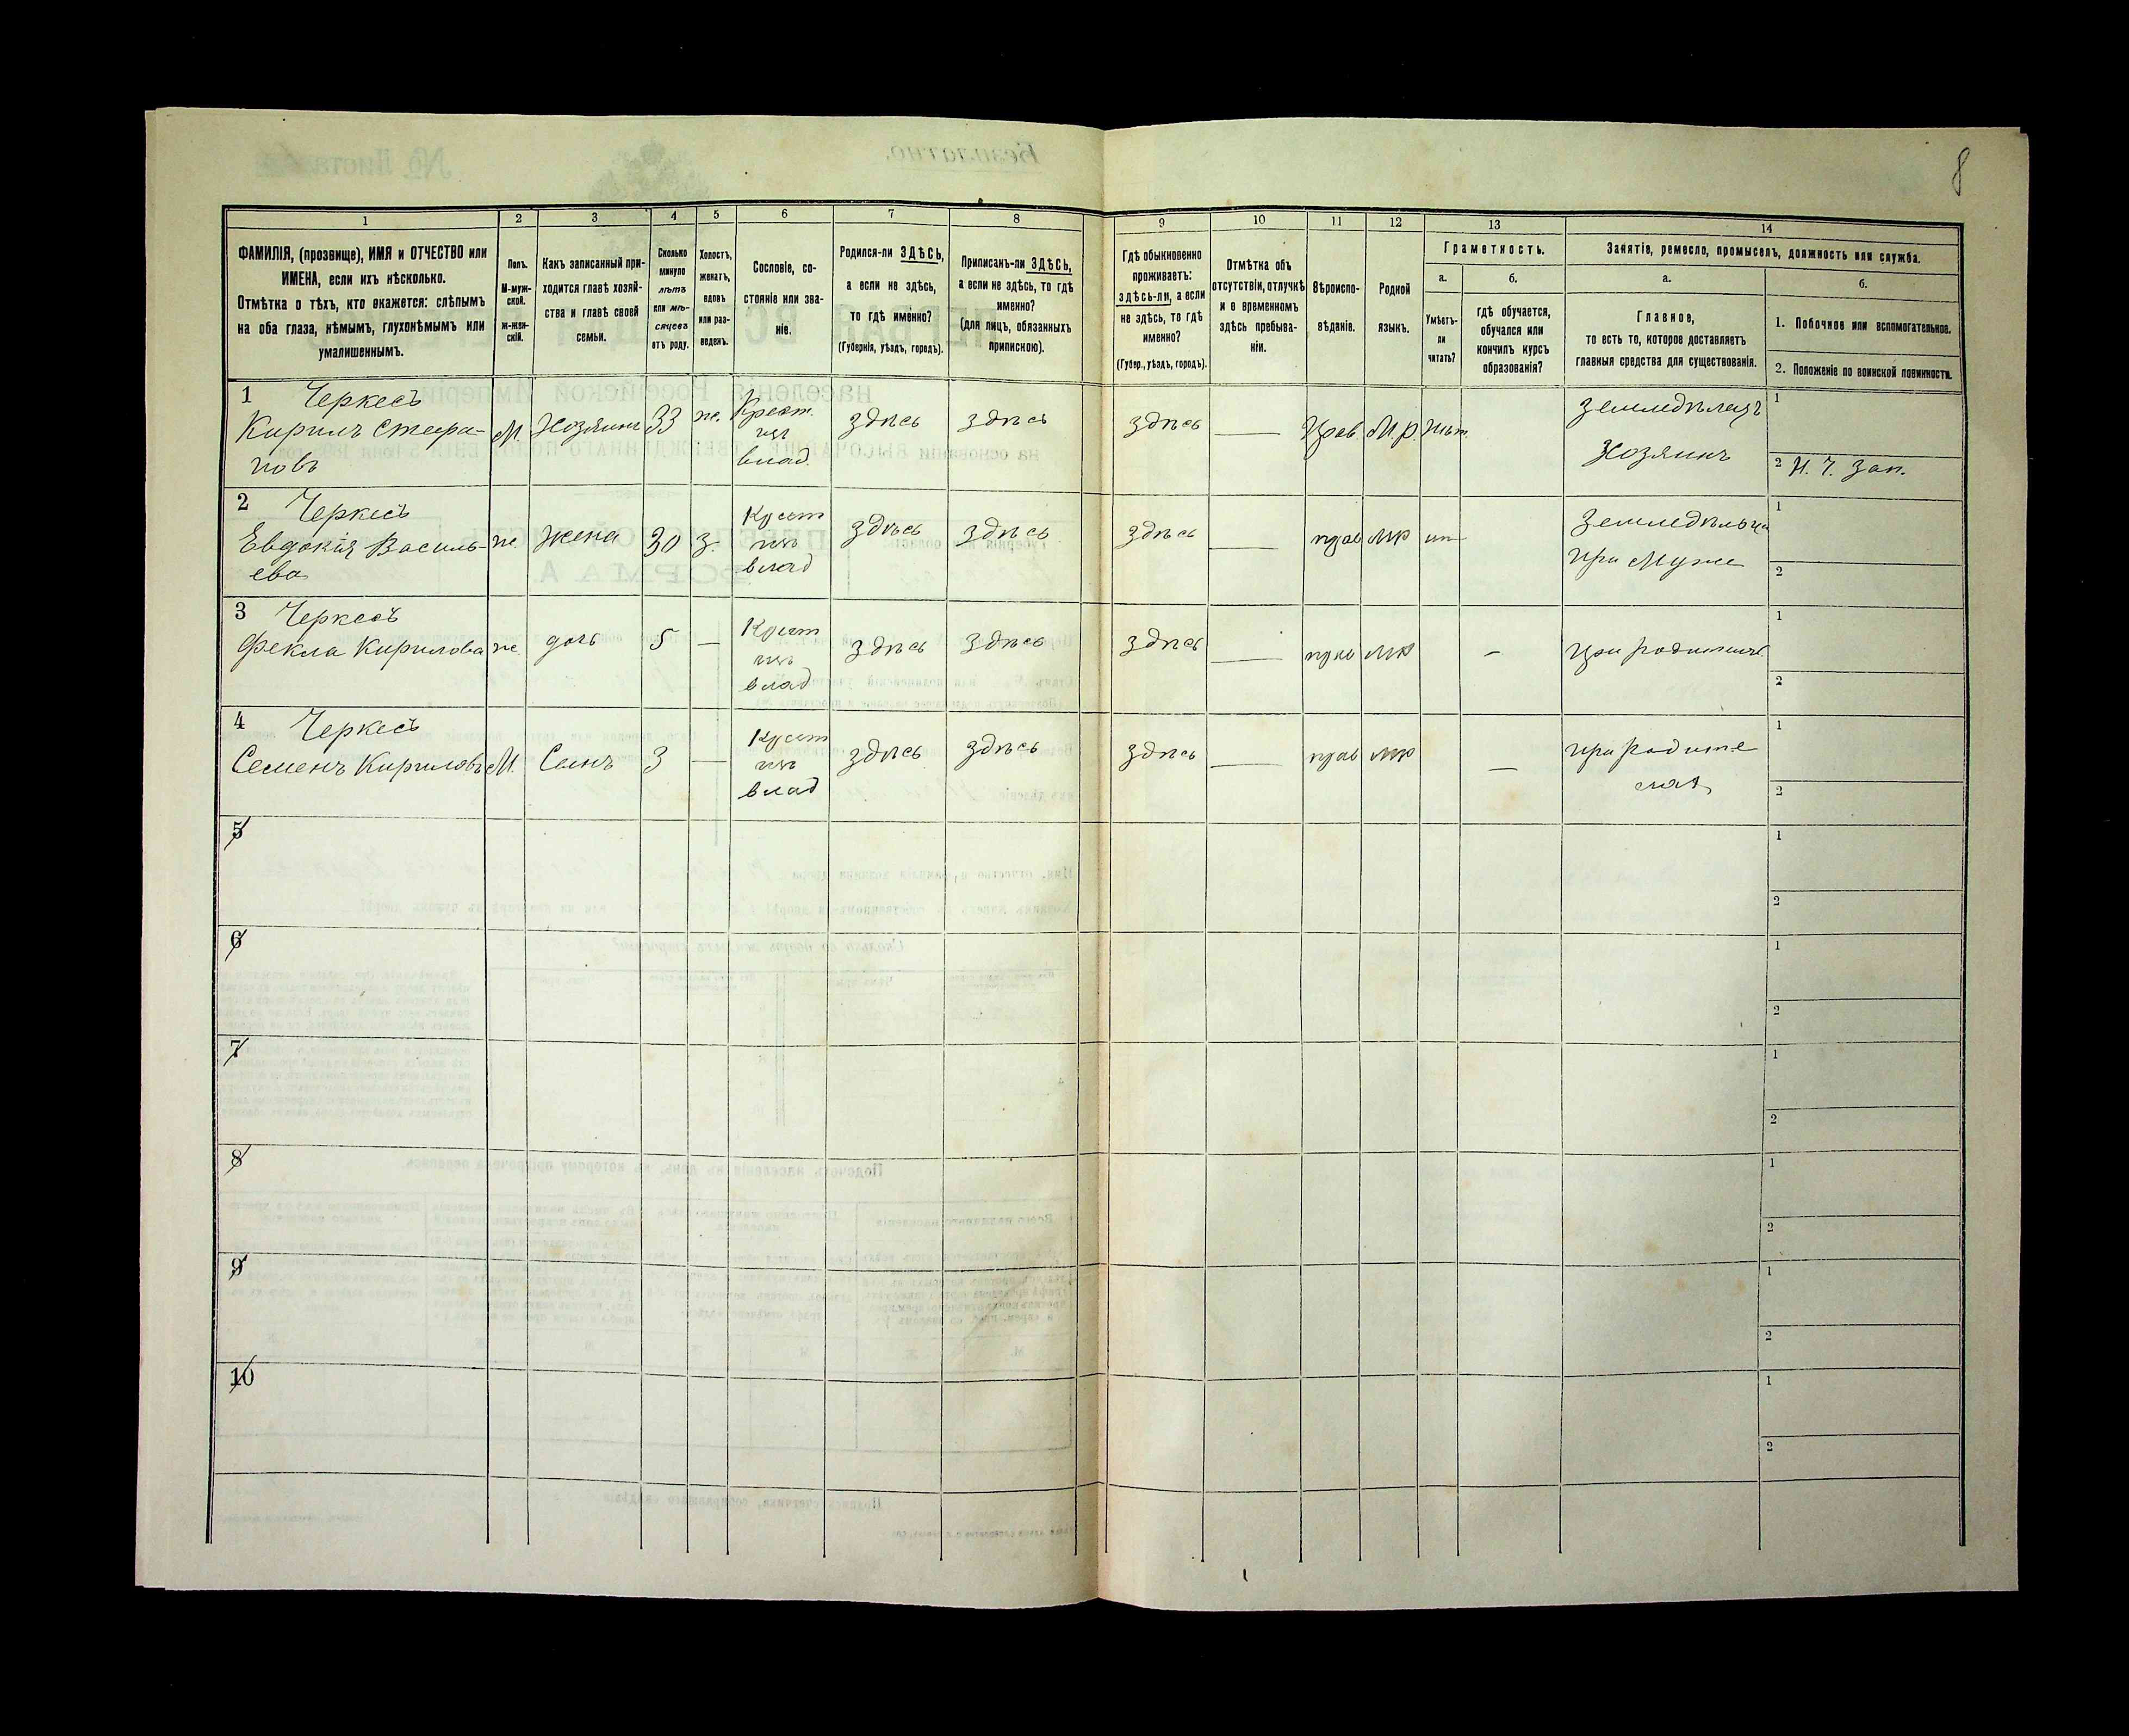 8
1 2 3 4 5 6 7 8 9 10 11 12 13 14
ФАМИЛІЯ, (прозвище), ИМЯ и ОТЧЕСТВО или
ИМЕНА, если ихъ нѣсколько.
Отмѣтка о тѣхъ, кто окажется: слѣпымъ
на оба глаза, нѣмымъ, глухонѣмымъ или
умалишеннымъ.
Полъ.
М-муж-
ской.
Ж-жен-
скій.
Какъ записанный при-
ходится главѣ хозяй-
ства и главѣ своей
семьи.
Сколько
минуло
лѣтъ
или мѣ-
сяцевъ
отъ роду.
Холостъ,
женатъ,
вдовъ
или раз-
веденъ.
Сословіе, со-
стояніе или зва-
ніе.
Родился-ли ЗДѢСЬ,
а если не здѣсь,
то гдѣ именно?
(Губернія, уѣздъ, городъ).
Приписанъ-ли ЗДѢСЬ,
а если не здѣсь, то гдѣ
именно?
(для лицъ, обязанныхъ
припискою).
Гдѣ обыкновенно
проживаетъ:
здѣсь-ли, а если
не здѣсь, то гдѣ
именно?
(Губер., уѣздъ, городъ).
Отмѣтка объ
отсутствіи, отлучкѣ
и о временномъ
здѣсь пребыва-
ніи.
Вѣроиспо-
вѣданіе.
Родной
языкъ.
Грамотность.
а.
Умѣетъ-
ли
читать?
б.
гдѣ обучается,
обучался или
кончилъ курсъ
образованія?
Занятіе, ремесло, промыселъ, должность или служба.
а.
Главное,
то есть то, которое доставляетъ
главныя средства для существованія.
б.
1. Побочное или вспомогательное.
2. Положеніе по воинской повинности.
1 Черкесъ
Кирилъ Стефа-
новъ
М. Хозяинъ 33 ж. Крест.
изъ
влад.
здѣсь здѣсь здѣсь — Прав. М.р. Нѣт.
Земледѣлецъ
Хозяинъ
1
2 Н. Ч. Зап.
2 Черкесъ
Евдокія Василь-
ева
ж. Жена 30 З. Крест
изъ
влад
здѣсь здѣсь здѣсь — прав мр
при Муже
1
2
3 Черкесъ
Фекла Кирилова ж. дочь 5 — Крест
изъ
влад
здѣсь здѣсь здѣсь — прав мр —
1
2
4 Черкесъ
Семенъ Кириловъ М. Сынъ 3 — Крест
изъ
влад
здѣсь здѣсь здѣсь — прав мр —
при родите
лях
1
2
5 1
2
6 1
2
7 1
2
8 1
2
9 1
2
10 1
2